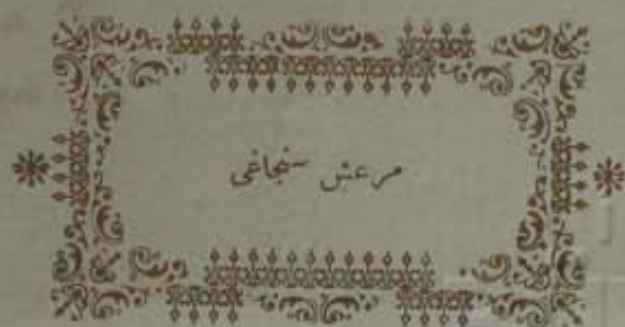 مرعش سنجاغی